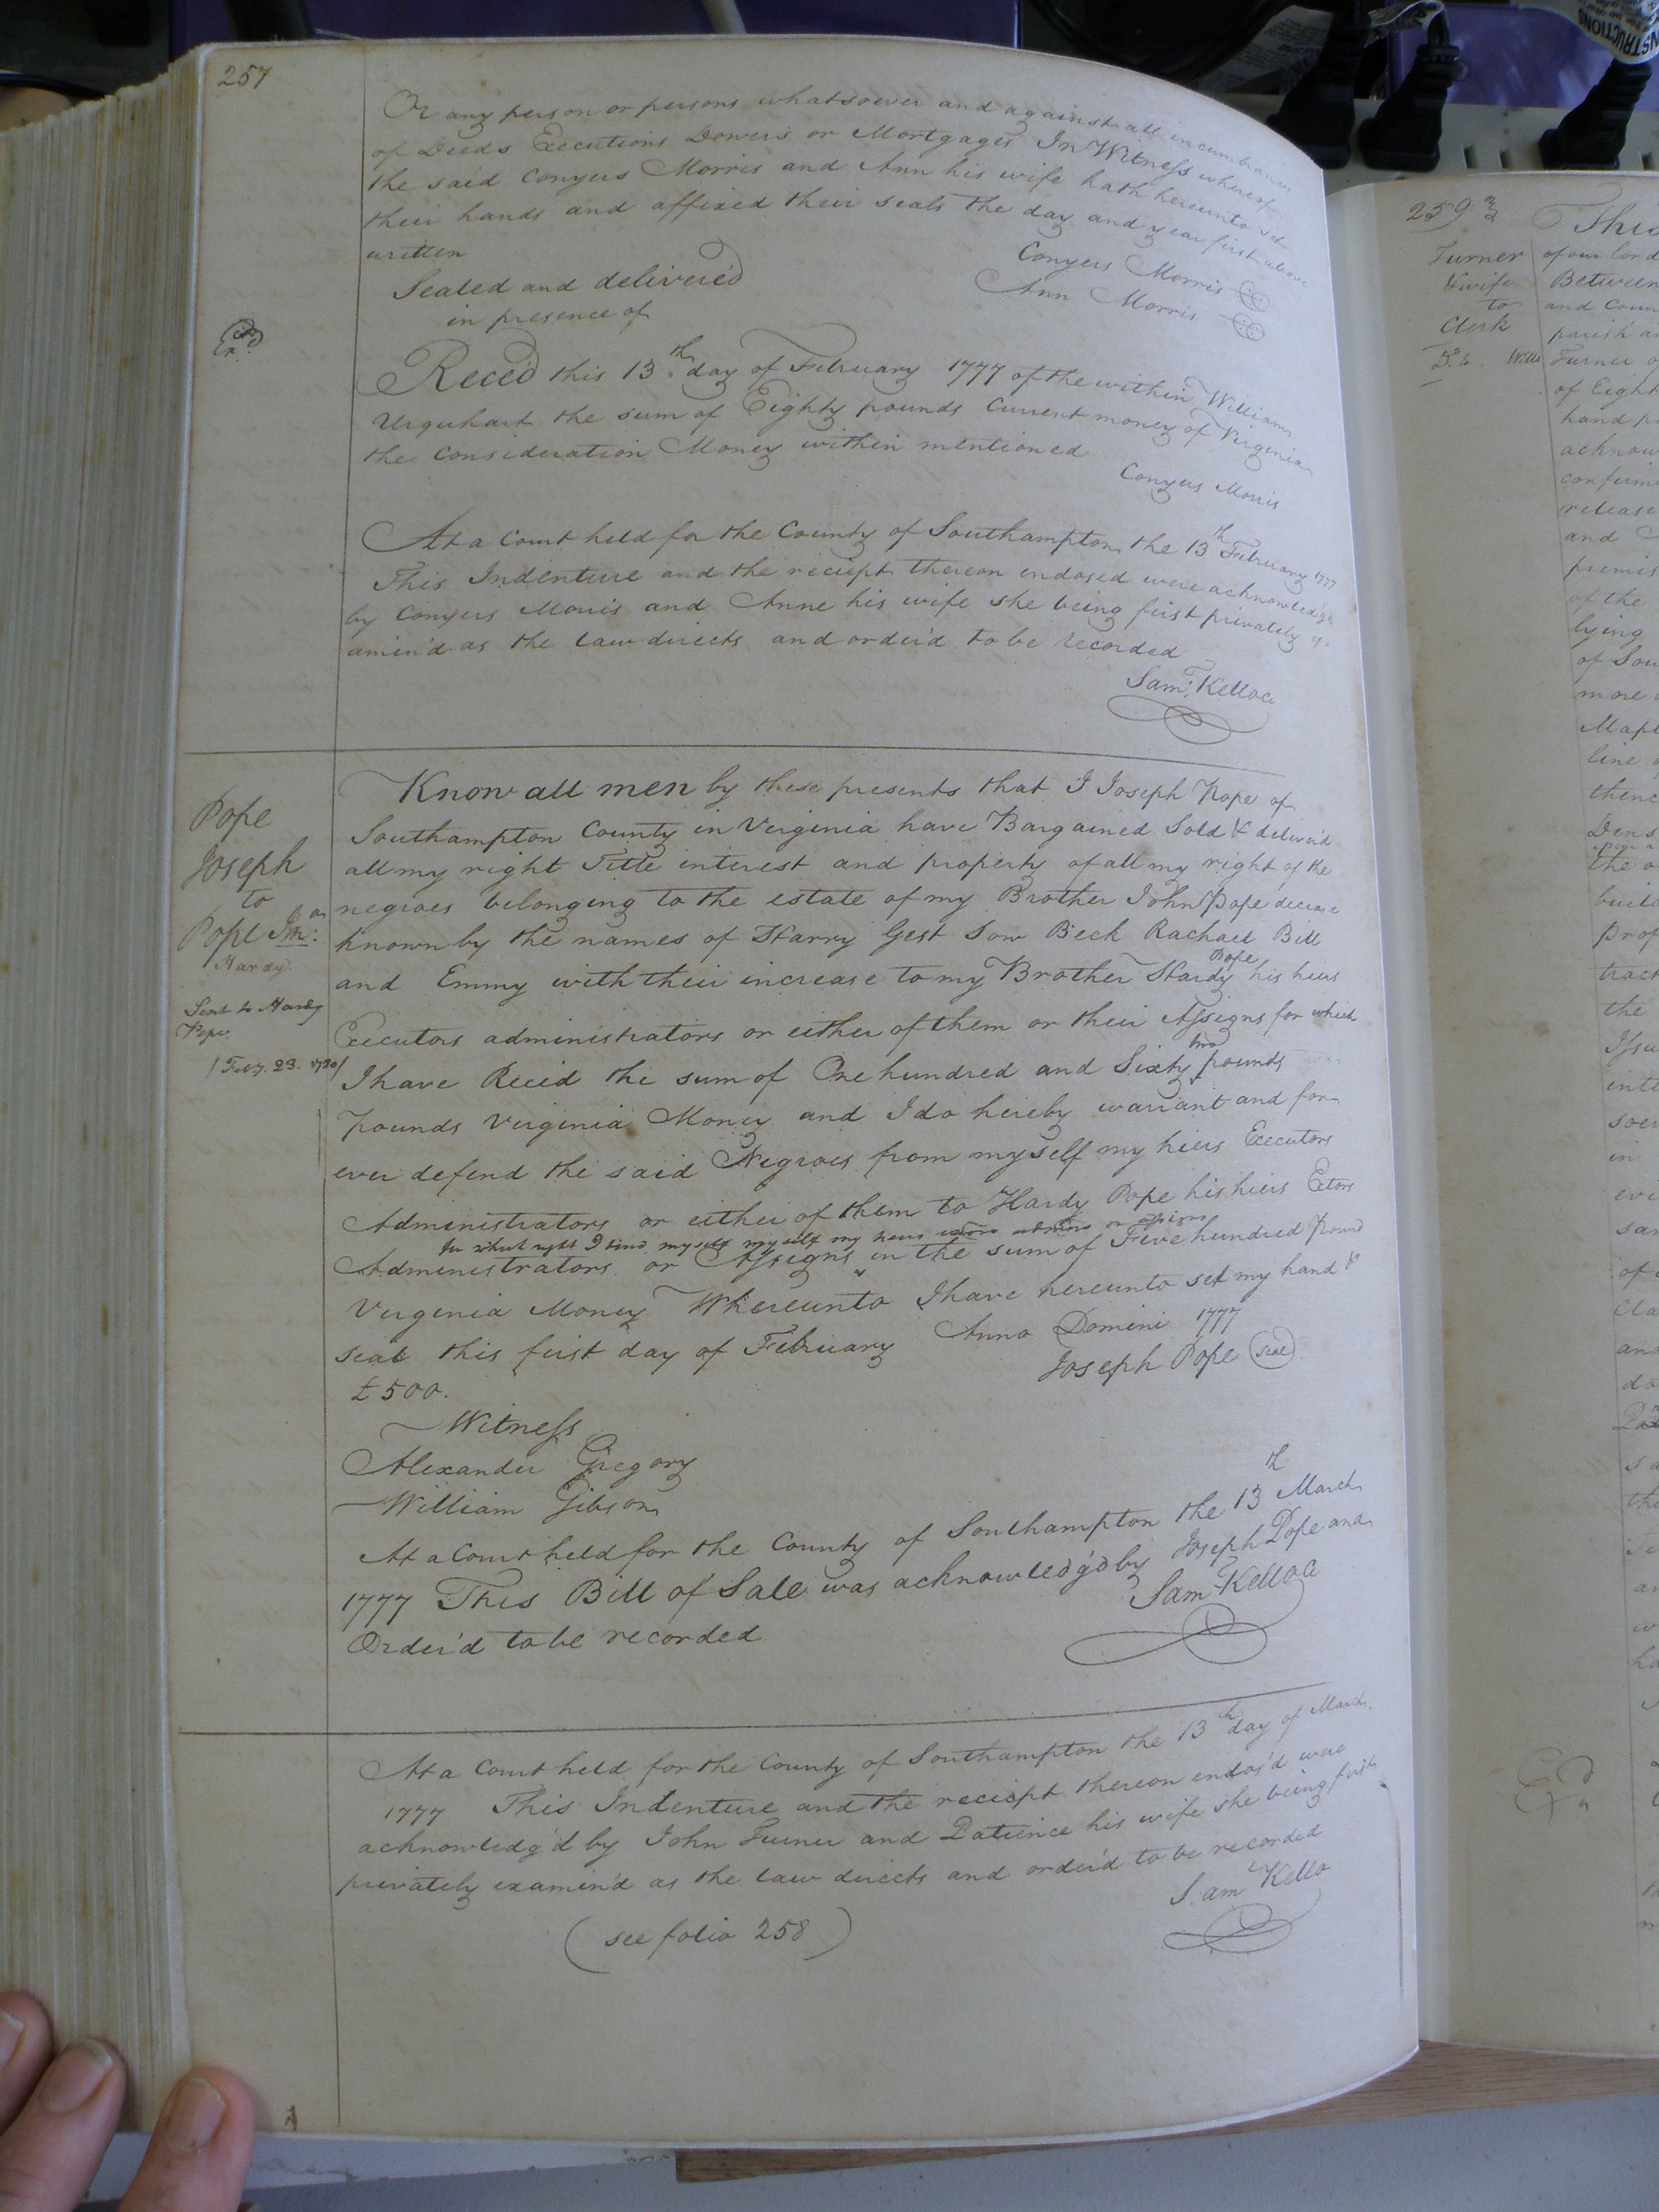 257
Or any person or persons whatsoever and against all incumbrances
of Deeds Executions Dowers or Mortgages In Witness whereof
the said Conyers Morris and Ann his wife hath hereunto set
their hands and affixed their seals the day and year first above
written
Conyers Morris
Sealed and deliver'd
Ann Morris
in presence of
Rece'd this 13th day of February 1777 of the within William
Urquhart the sum of Eighty pounds Current money of Virginia
the Consideration Money within mentioned
Conyers Morris
At a Court held for the County of Southampton the 13th February 1777
This Indenture and the reciept thereon endosed were acknowledg'd
by Conyers Morris and Anne his wife she being first privately ex
amin'd as the law directs and order'd to be recorded
Sam: Kelloe
Pope
Joseph
to
Pope
Hardy
Sent to Hardy
Pope
Feby. 23. 1780
Know all men by these presents that I Joseph Pope of
Southampton County in Virginia have Bargained Sold & deliver'd
all my right Title interest and property of all my right of the
negroes belonging to the estate of my Brother John Pope decease
known by the names of Harry Gest Sow Beck Rachael Bill
and Emmy with their increase to my Brother Hardy Pope his heirs
Executors administrators or either of them or their Assigns for which
I have Receid the sum of One hundred and Sixty two pounds
pounds Virginia Money and I do hereby warrant and for
ever defend the said Negroes from myself my hiers Executors
Administrators or either of them to Hardy Pope his hiers Exetors
In which right I bind myself myself my heirs admins or assigns
Administrators or Assigns in the sum of Five hundred pound
Virginia Money Whereunto I have hereunto set my hand &
seal this first day of February Anno Domini 1777
£500.
Joseph Pope seal
Witness
Alexander Gregory
William Gibson
At a Court held for the County of Southampton the 13th March
1777 This Bill of Sale was acknowledg'd by Joseph Pope and
Order'd to be recorded
Sam Kelloe
At a Court held for the County of Southampton the 13th day of March
1777 This Indenture and the reciept thereon endos'd were
acknowledg'd by John Turner and Patience his wife she being first
privately examin'd as the law directs and order'd to be recorded
Sam Kello
(see folio 258)
259
This
Turner
of our Lord
& wife
Between
to
and Coun
Clerk
parish an
Turner o
of Eight
hand p
acknow
confirm
release
and
premis
of the
lying
of Sou
more
Mapl
line
thenc
the
build
prop
tract
the
Issu
in
of
an